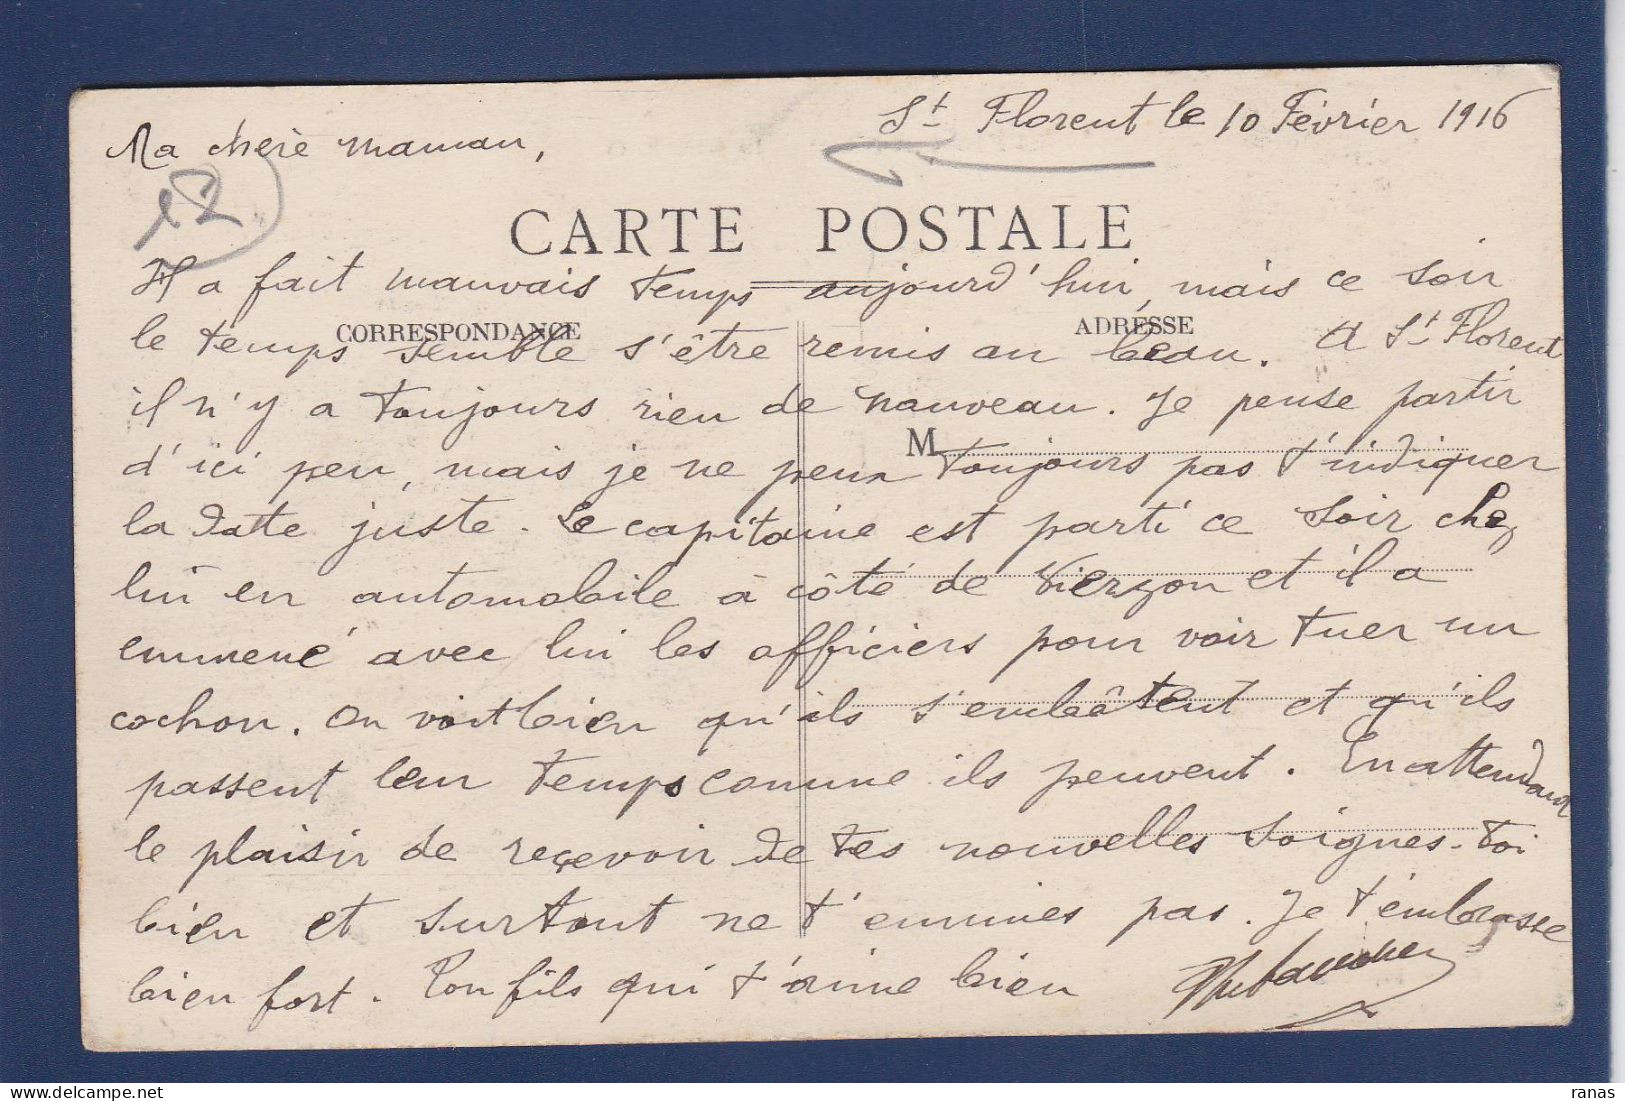 St Florent le 10 Février 1916
Ma cherè maman,
12
CARTE POSTALE
Il a fait mauvais temps aujourd'hui, mais ce soir
CORRESPONDANCE ADRESSE
le temps semble s'être remis au beau. A St Florent
il n'y a toujours rien de nauveau. Je pense partir
M
d'ici peu, mais je ne peux toujours pas t'indiquer
la datte juste. Le capitaine est parti ce soir chez
lui en automobile à côté de Vierzon et il a
emmené avec lui les officiers pour voir tuer un
cochon. On voit bien qu'ils s'embâtent et qu'ils
passent leur temps comme ils peuvent. En attendant
le plaisir de reçevoir de tes nouvelles soignes-toi
bien et surtout ne t'ennuies pas. Je t'embrasse
bien fort. Ton fils qui t'aime bien
ranas